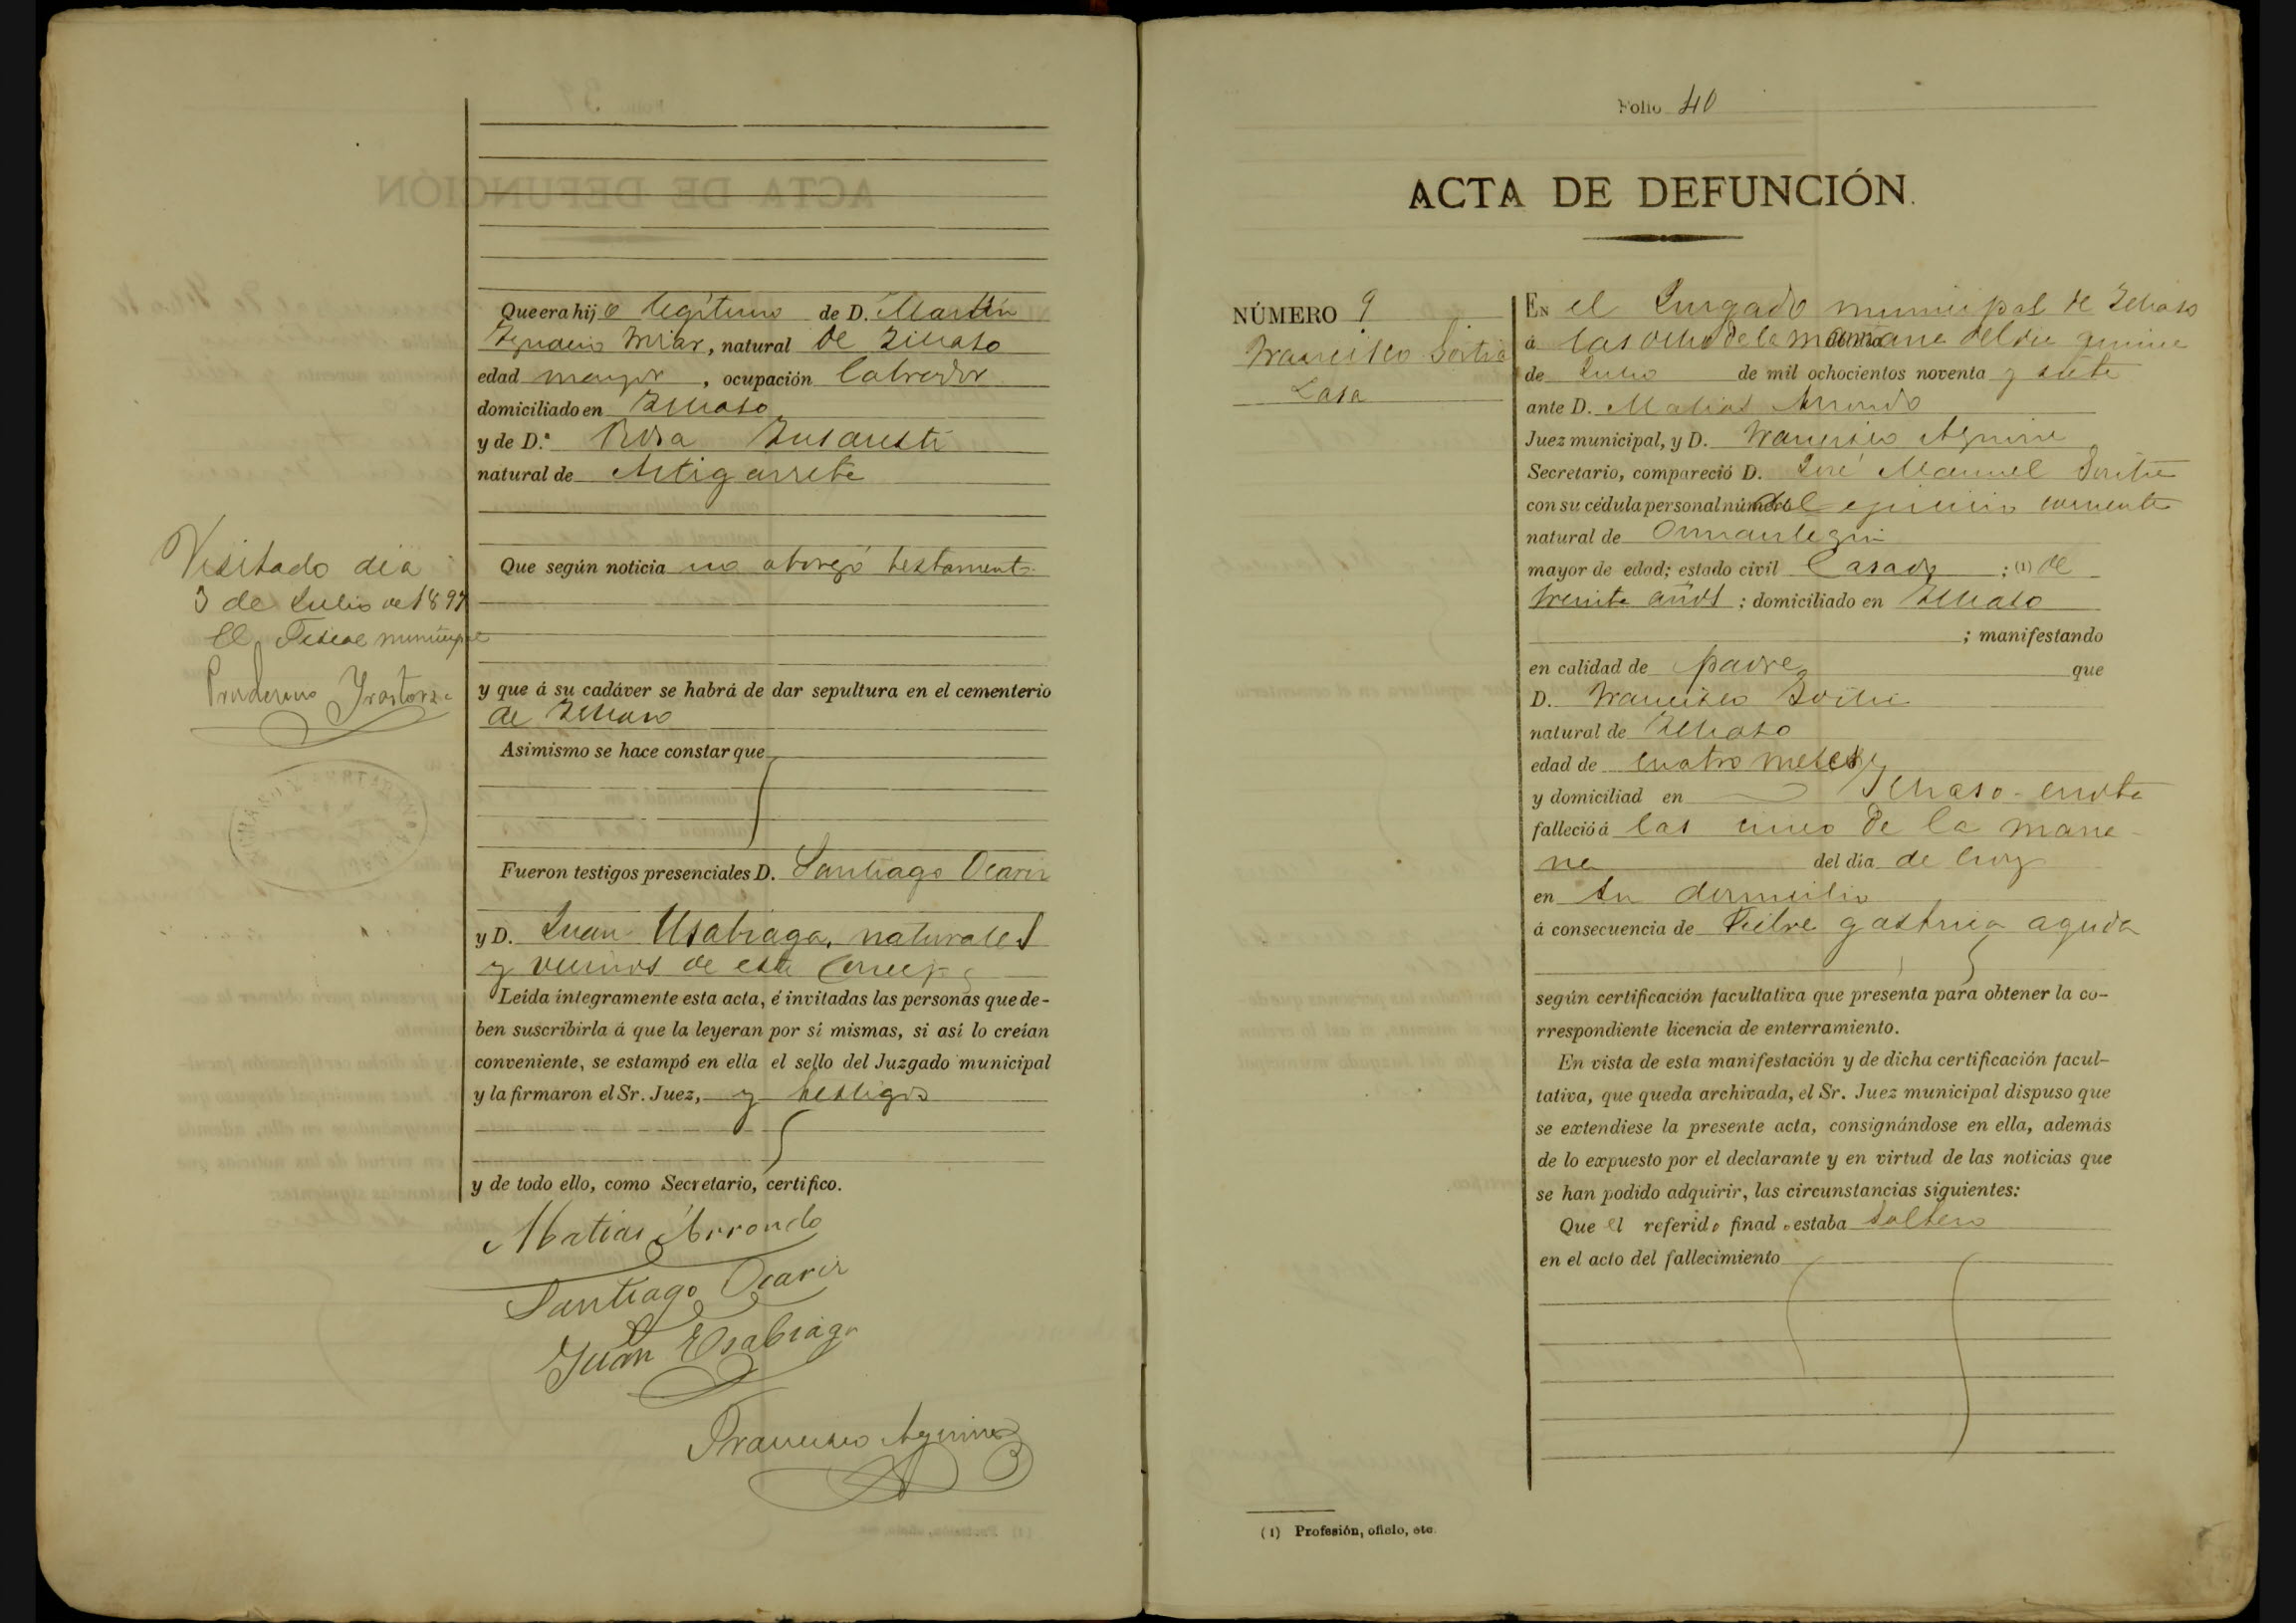 Que era hijo legítimo de D. Martín
Ignacio, natural de Itsaso
edad mayor, ocupación labrador
domiciliado en Itsaso
y de D.ª Rosa
natural de
Que según noticia no otorgó testamento
y que á su cadáver se habrá de dar sepultura en el cementerio
de Itsaso
Asimismo se hace constar que
Fueron testigos presenciales D. Santiago Ocariz
y D. Juan Usabiaga, naturales
y vecinos de este
Leída íntegramente esta acta, é invitadas las personas que de-
ben suscribirla á que la leyeran por sí mismas, si así lo creían
conveniente, se estampó en ella el sello del Juzgado municipal
y la firmaron el Sr. Juez, y testigos
y de todo ello, como Secretario, certifico.
Matias Arrondo
Santiago Ocariz
Juan Usabiaga
Francisco Aguirre
Visitado dia
3 de Julio de 1897
El Fiscal municipal
Folio 40
ACTA DE DEFUNCIÓN.
NÚMERO 9
Francisco
Lasa
En el Juzgado municipal de Itsaso
á las ocho de la mañana del dia quince
de Julio de mil ochocientos noventa y siete
ante D. Matias Arrondo
Juez municipal, y D. Francisco Aguirre
Secretario, compareció D. José Manuel
con su cédula personal número del corriente
natural de
mayor de edad; estado civil Casado; (1) de
treinta años; domiciliado en Itsaso
; manifestando
en calidad de padre que
D. Francisco
natural de Itsaso
edad de cuatro meses
y domiciliad en Itsaso
falleció á las cinco de la maña-
na del dia de hoy
en su domicilio
á consecuencia de Fiebre gastrica aguda
según certificación facultativa que presenta para obtener la co-
rrespondiente licencia de enterramiento.
En vista de esta manifestación y de dicha certificación facul-
tativa, que queda archivada, el Sr. Juez municipal dispuso que
se extendiese la presente acta, consignándose en ella, además
de lo expuesto por el declarante y en virtud de las noticias que
se han podido adquirir, las circunstancias siguientes:
Que el referido finado estaba soltero
en el acto del fallecimiento
(1) Profesión, oficio, etc.